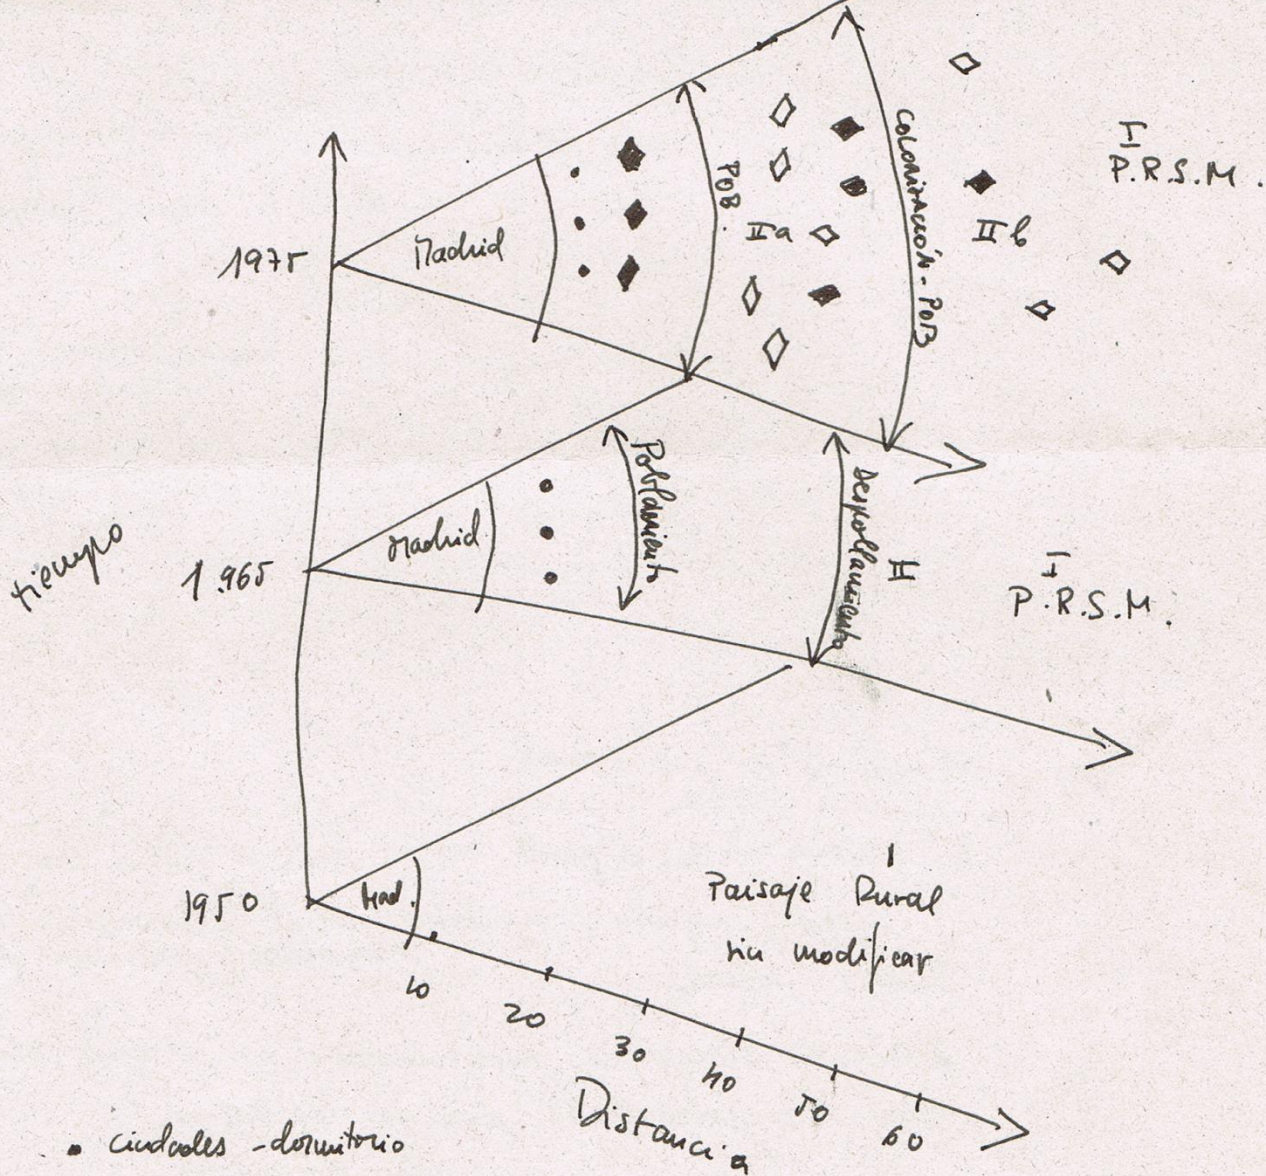 I
P.R.S.M.
Madrid
POB.
IIa
COLONIZACIÓN-POB
IIb
1975
Madrid
Poblamiento
Despoblamiento
II
I
P.R.S.M.
tiempo
1.965
1950
Mad.
I
Paisaje Rural
sin modificar
10
20
30
40
50
60
Distancia
• ciudades-dormitorio